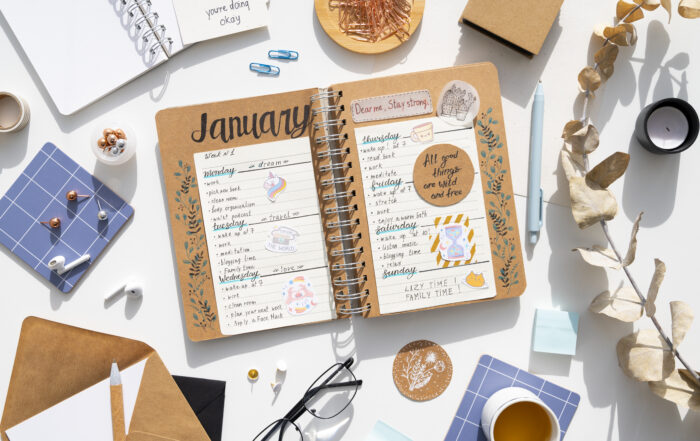 you're doing
okay
January
Week № 1
Monday
dream
• work
• pick new book
• clean room
• body organisation
• walk+ podcast
Tuesday
travel
• wake up at 7
• work
• meditation
• blogging time
• Family time
Wednesday
love
• wake up at 7
• work
• clean room
• plan your next week
• Apply a Face Mask
Dear me, Stay strong.
Thursday
• wake up ! at 7
• read book
• work
• meditation
Friday
• wake up at 7
• stretch
• work
• enjoy a warm bath
Saturday
• wake up at 10!
• listen music
• blogging time
• relax
Sunday
LAZY TIME !
FAMILY TIME !
All good
things
are wild and
free